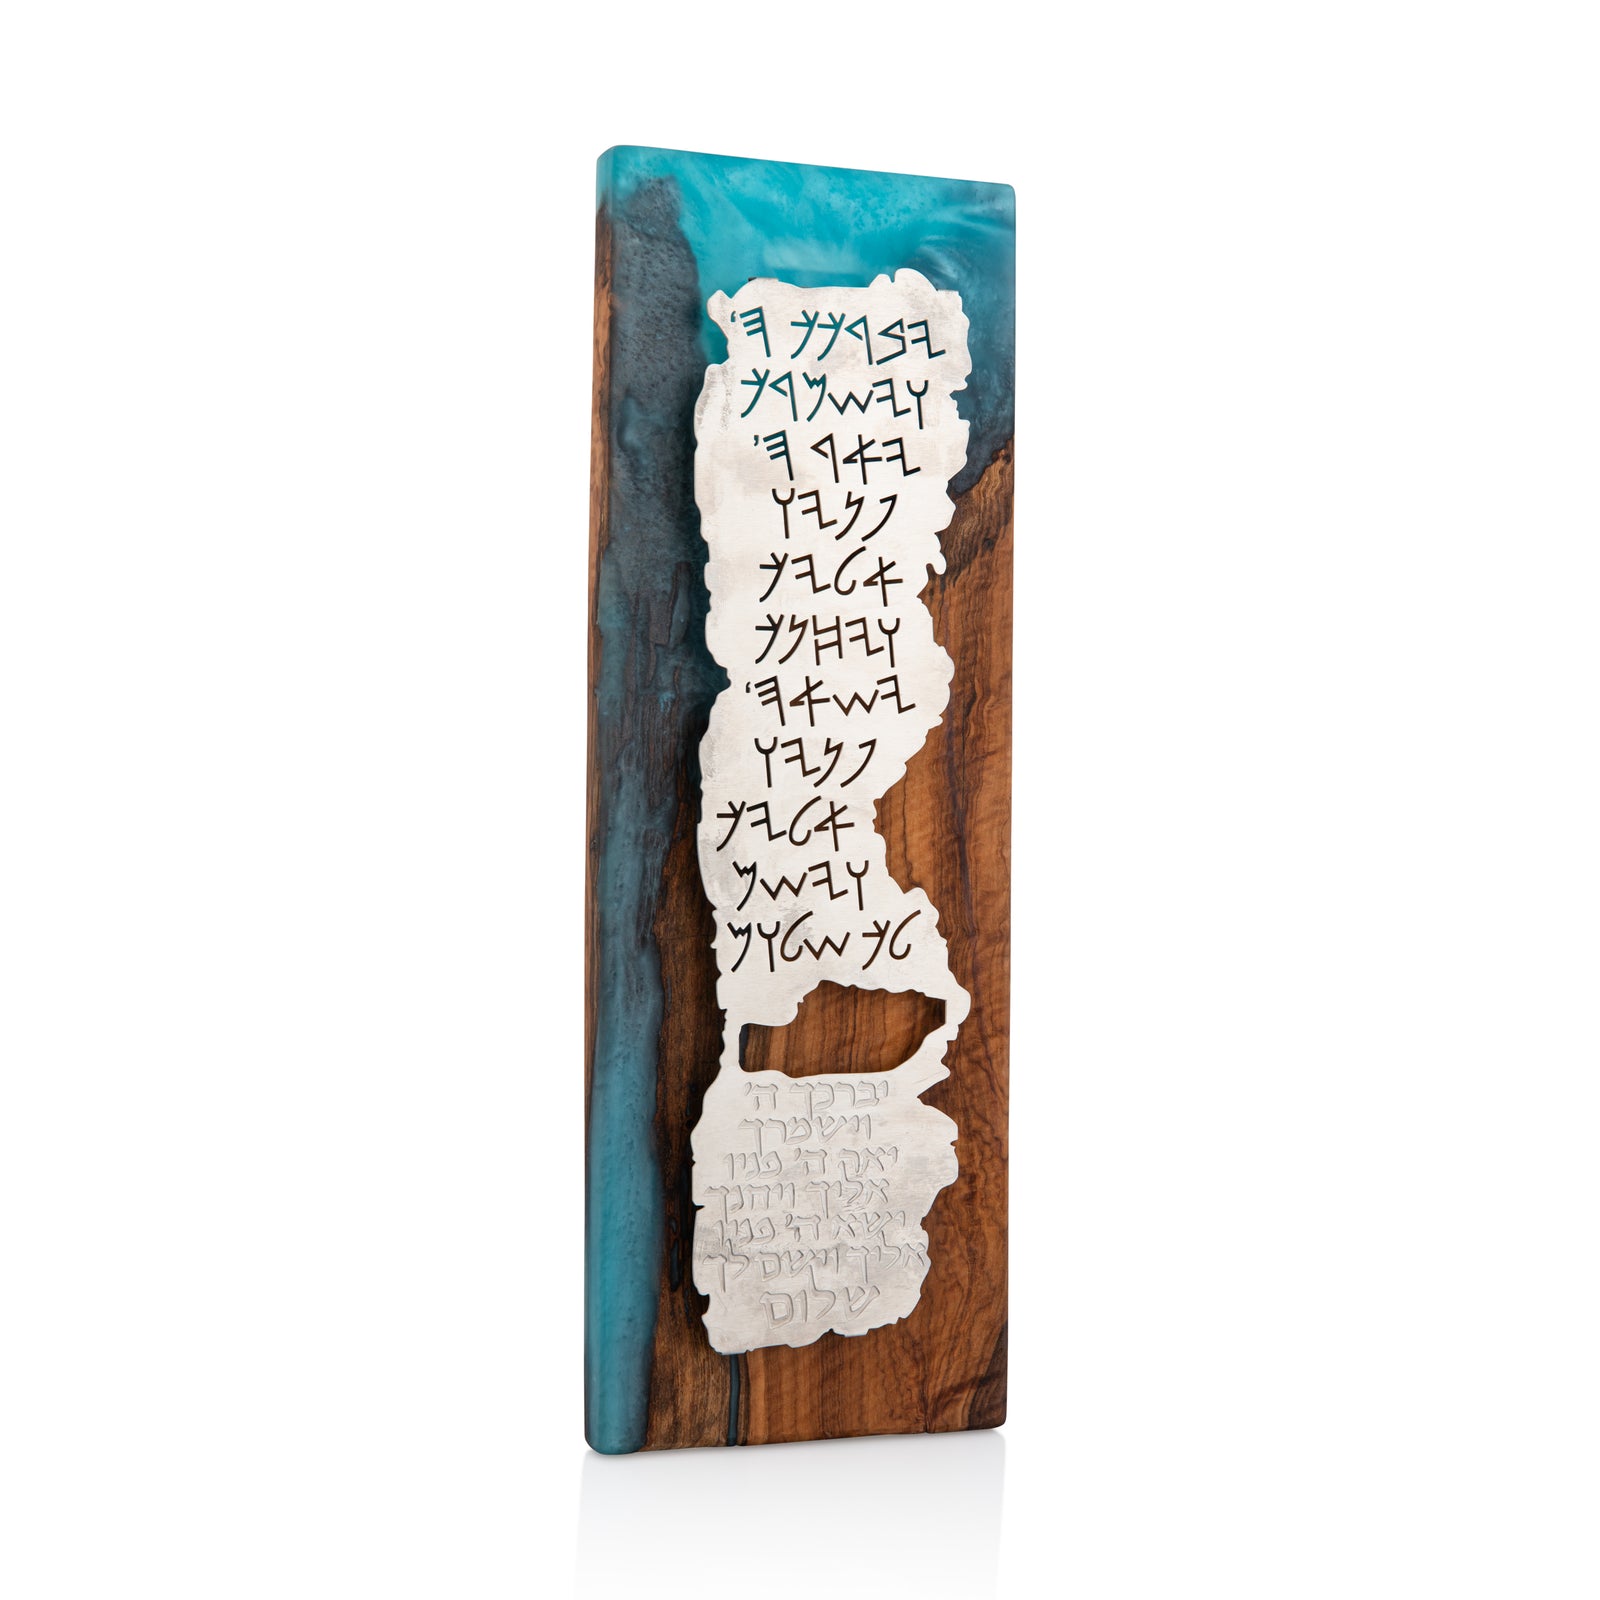 𐤉𐤁𐤓𐤊𐤊 𐤄'
𐤅𐤉𐤔𐤌𐤓𐤊
𐤉𐤀𐤓 𐤄'
𐤐𐤍𐤉𐤅
𐤀𐤋𐤉𐤊
𐤅𐤉𐤇𐤍𐤊
𐤉𐤔𐤀 𐤄'
𐤐𐤍𐤉𐤅
𐤀𐤋𐤉𐤊
𐤅𐤉𐤔𐤌
𐤋𐤊 𐤔𐤋𐤅𐤌
יברכך ה'
וישמרך
יאר ה' פניו
אליך ויחנך
ישא ה' פניו
אליך וישם לך
שלום